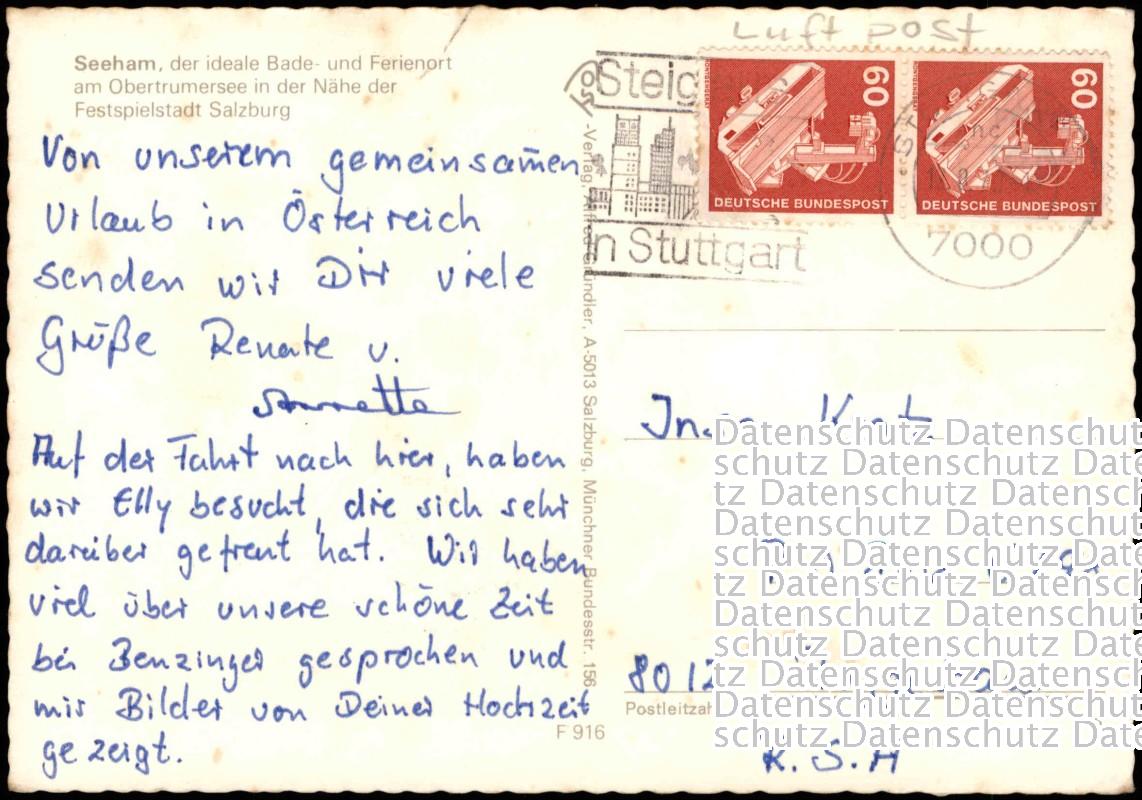 Luft post
Seeham, der ideale Bade- und Ferienort
am Obertrumersee in der Nähe der
Festspielstadt Salzburg
Von unserem gemeinsamen
Urlaub in Österreich
senden wir Dir viele
Grüße Renate u.
Annette
Auf der Fahrt nach hier, haben
wir Elly besucht, die sich sehr
darüber gefreut hat. Wir haben
viel über unsere schöne Zeit
bei Benzinger gesprochen und
mir Bilder von Deiner Hochzeit
gezeigt.
-Verlag, Alfred Gründler, A-5013 Salzburg, Münchner Bundesstr. 156
F 916
Steig
in Stuttgart
60
DEUTSCHE BUNDESPOST
60
DEUTSCHE BUNDESPOST
7000
Datenschutz Datenschut
schutz Datenschutz Date
tz Datenschutz Datensch
Datenschutz Datenschut
schutz Datenschutz Date
tz Datenschutz Datensch
Datenschutz Datenschut
schutz Datenschutz Date
8012
tz Datenschutz Datensch
Postleitzah
Datenschutz Datenschut
schutz Datenschutz Date